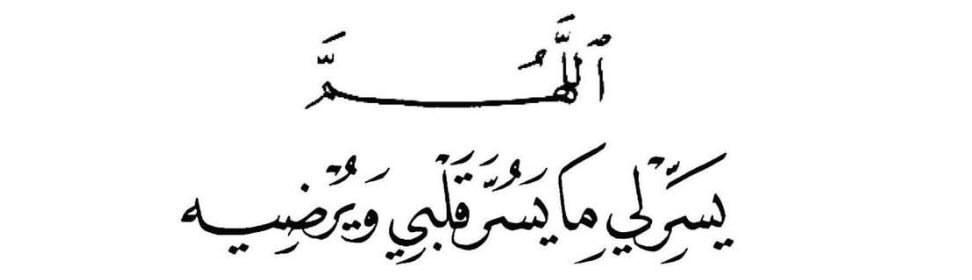 ٱللَّهُمَّ
يَسِّرْ لِي مَا يَسُرَّ قَلْبِي وَيُرْضِيه